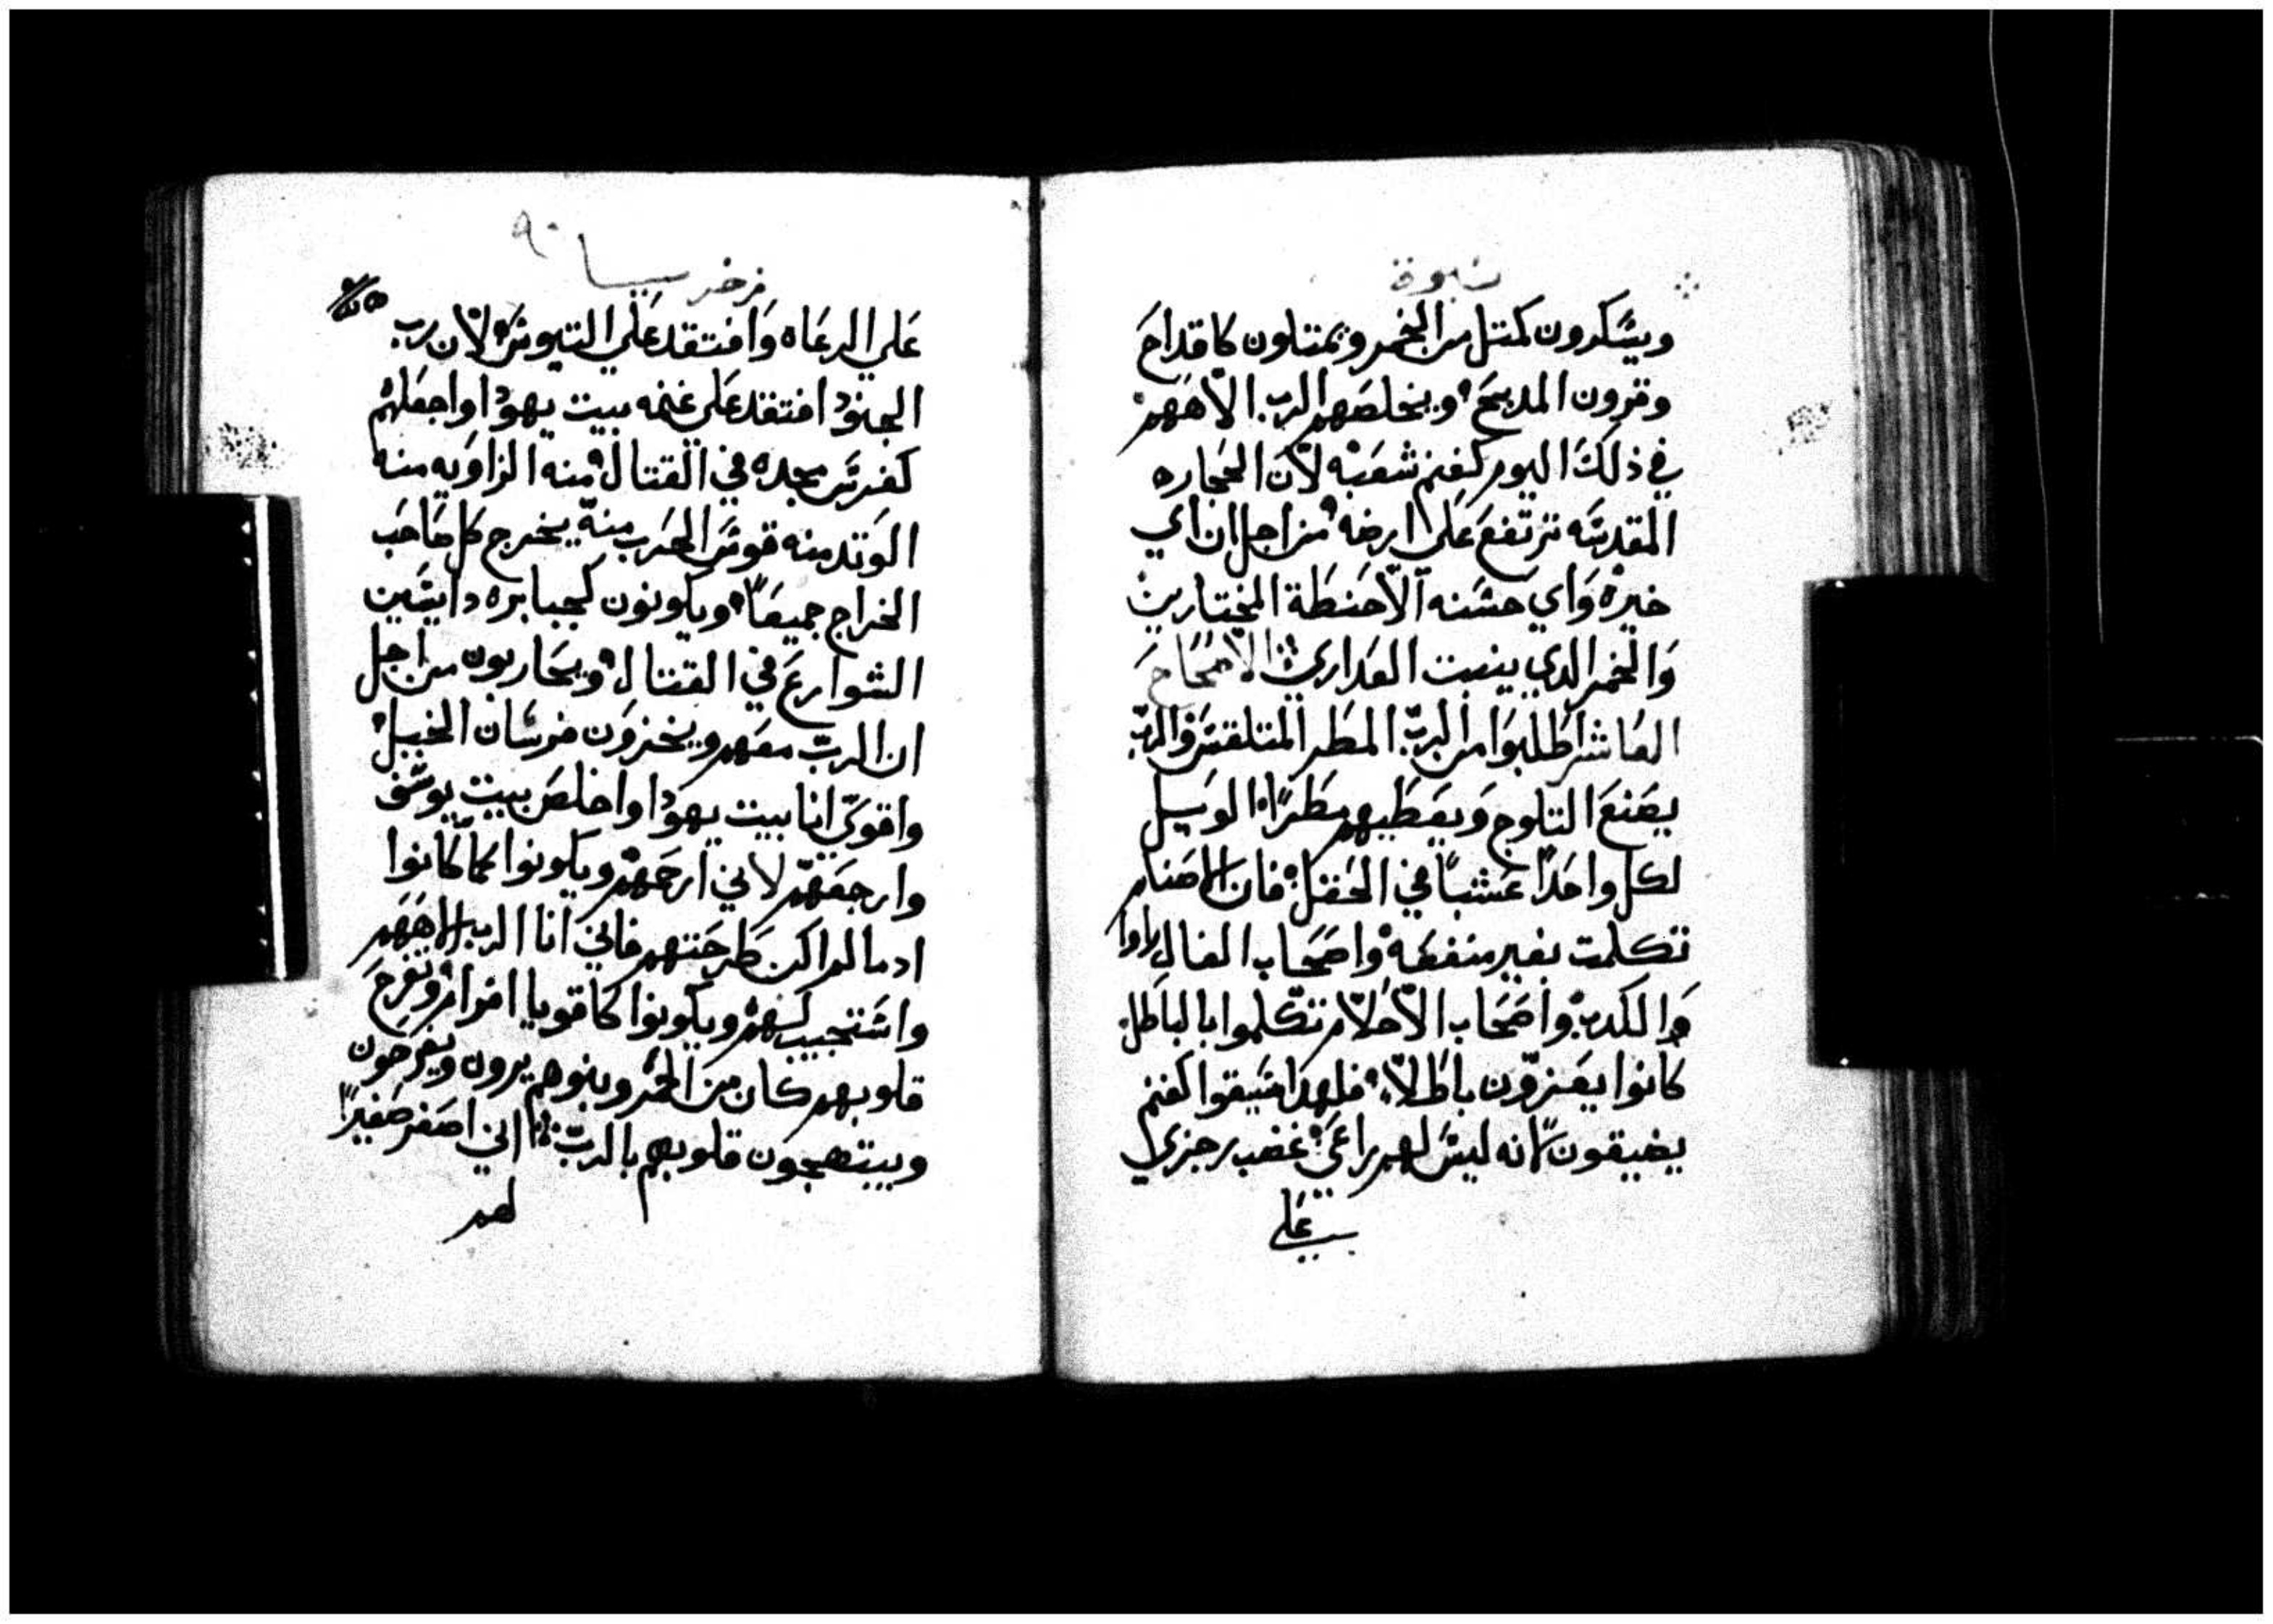 نبوة
ويسكرون كمتل من الخمر ويمتلون كاقداح
وقرون المدبح ويخلصهم الرب الاههم
في ذلك اليوم كغنم شعبه لان الحجاره
المقدسه ترتفع علي ارضه من اجل ان اي
خيره واي حسنه الا حنطة المختارين
والخمر الدي ينبت العداري الاصحاح
العاشر اطلبوا من الرب المطر المتلقس والرب
يصنع التلوج ويعطيهم مطرا الوسيل
لكل واحدا عشبا في الحقل فان الاصنام
تكلمت بغير منفعه واصحاب الفال راوا
والكدب واصحاب الاحلام تكلموا بالباطل
كانوا يعزون باطلا فلهدا سيقوا كغنم
يضيقون لانه ليس لهم راعي غضب رجزي
علي
زخريا
٩٠
علي الرعاه وافتقد علي التيوس لان رب
الجنود افتقد علي غنمه بيت يهودا واجعلهم
كفرس مجده في القتال منه الزاويه منه
الوتد منه قوس الحرب منه يخرج كل صاحب
الخراج جميعا ويكونون كجبابره دايسين
الشوارع في القتال ويحاربون من اجل
ان الرب معهم ويخزون فرسان الخيل
واقوي انا بيت يهودا واخلص بيت يوسف
وارجعهم لاني ارحمهم ويكونوا كما كانوا
ادما لم اكن طرحتهم فاني انا الرب الاههم
واستجيب لهم ويكونوا كاقويا افرام وتفرح
قلوبهم كان من الخمر وبنوهم يرون ويفرحون
ويبتهجون قلوبهم بالرب اني اصفر صفيرا
لهم